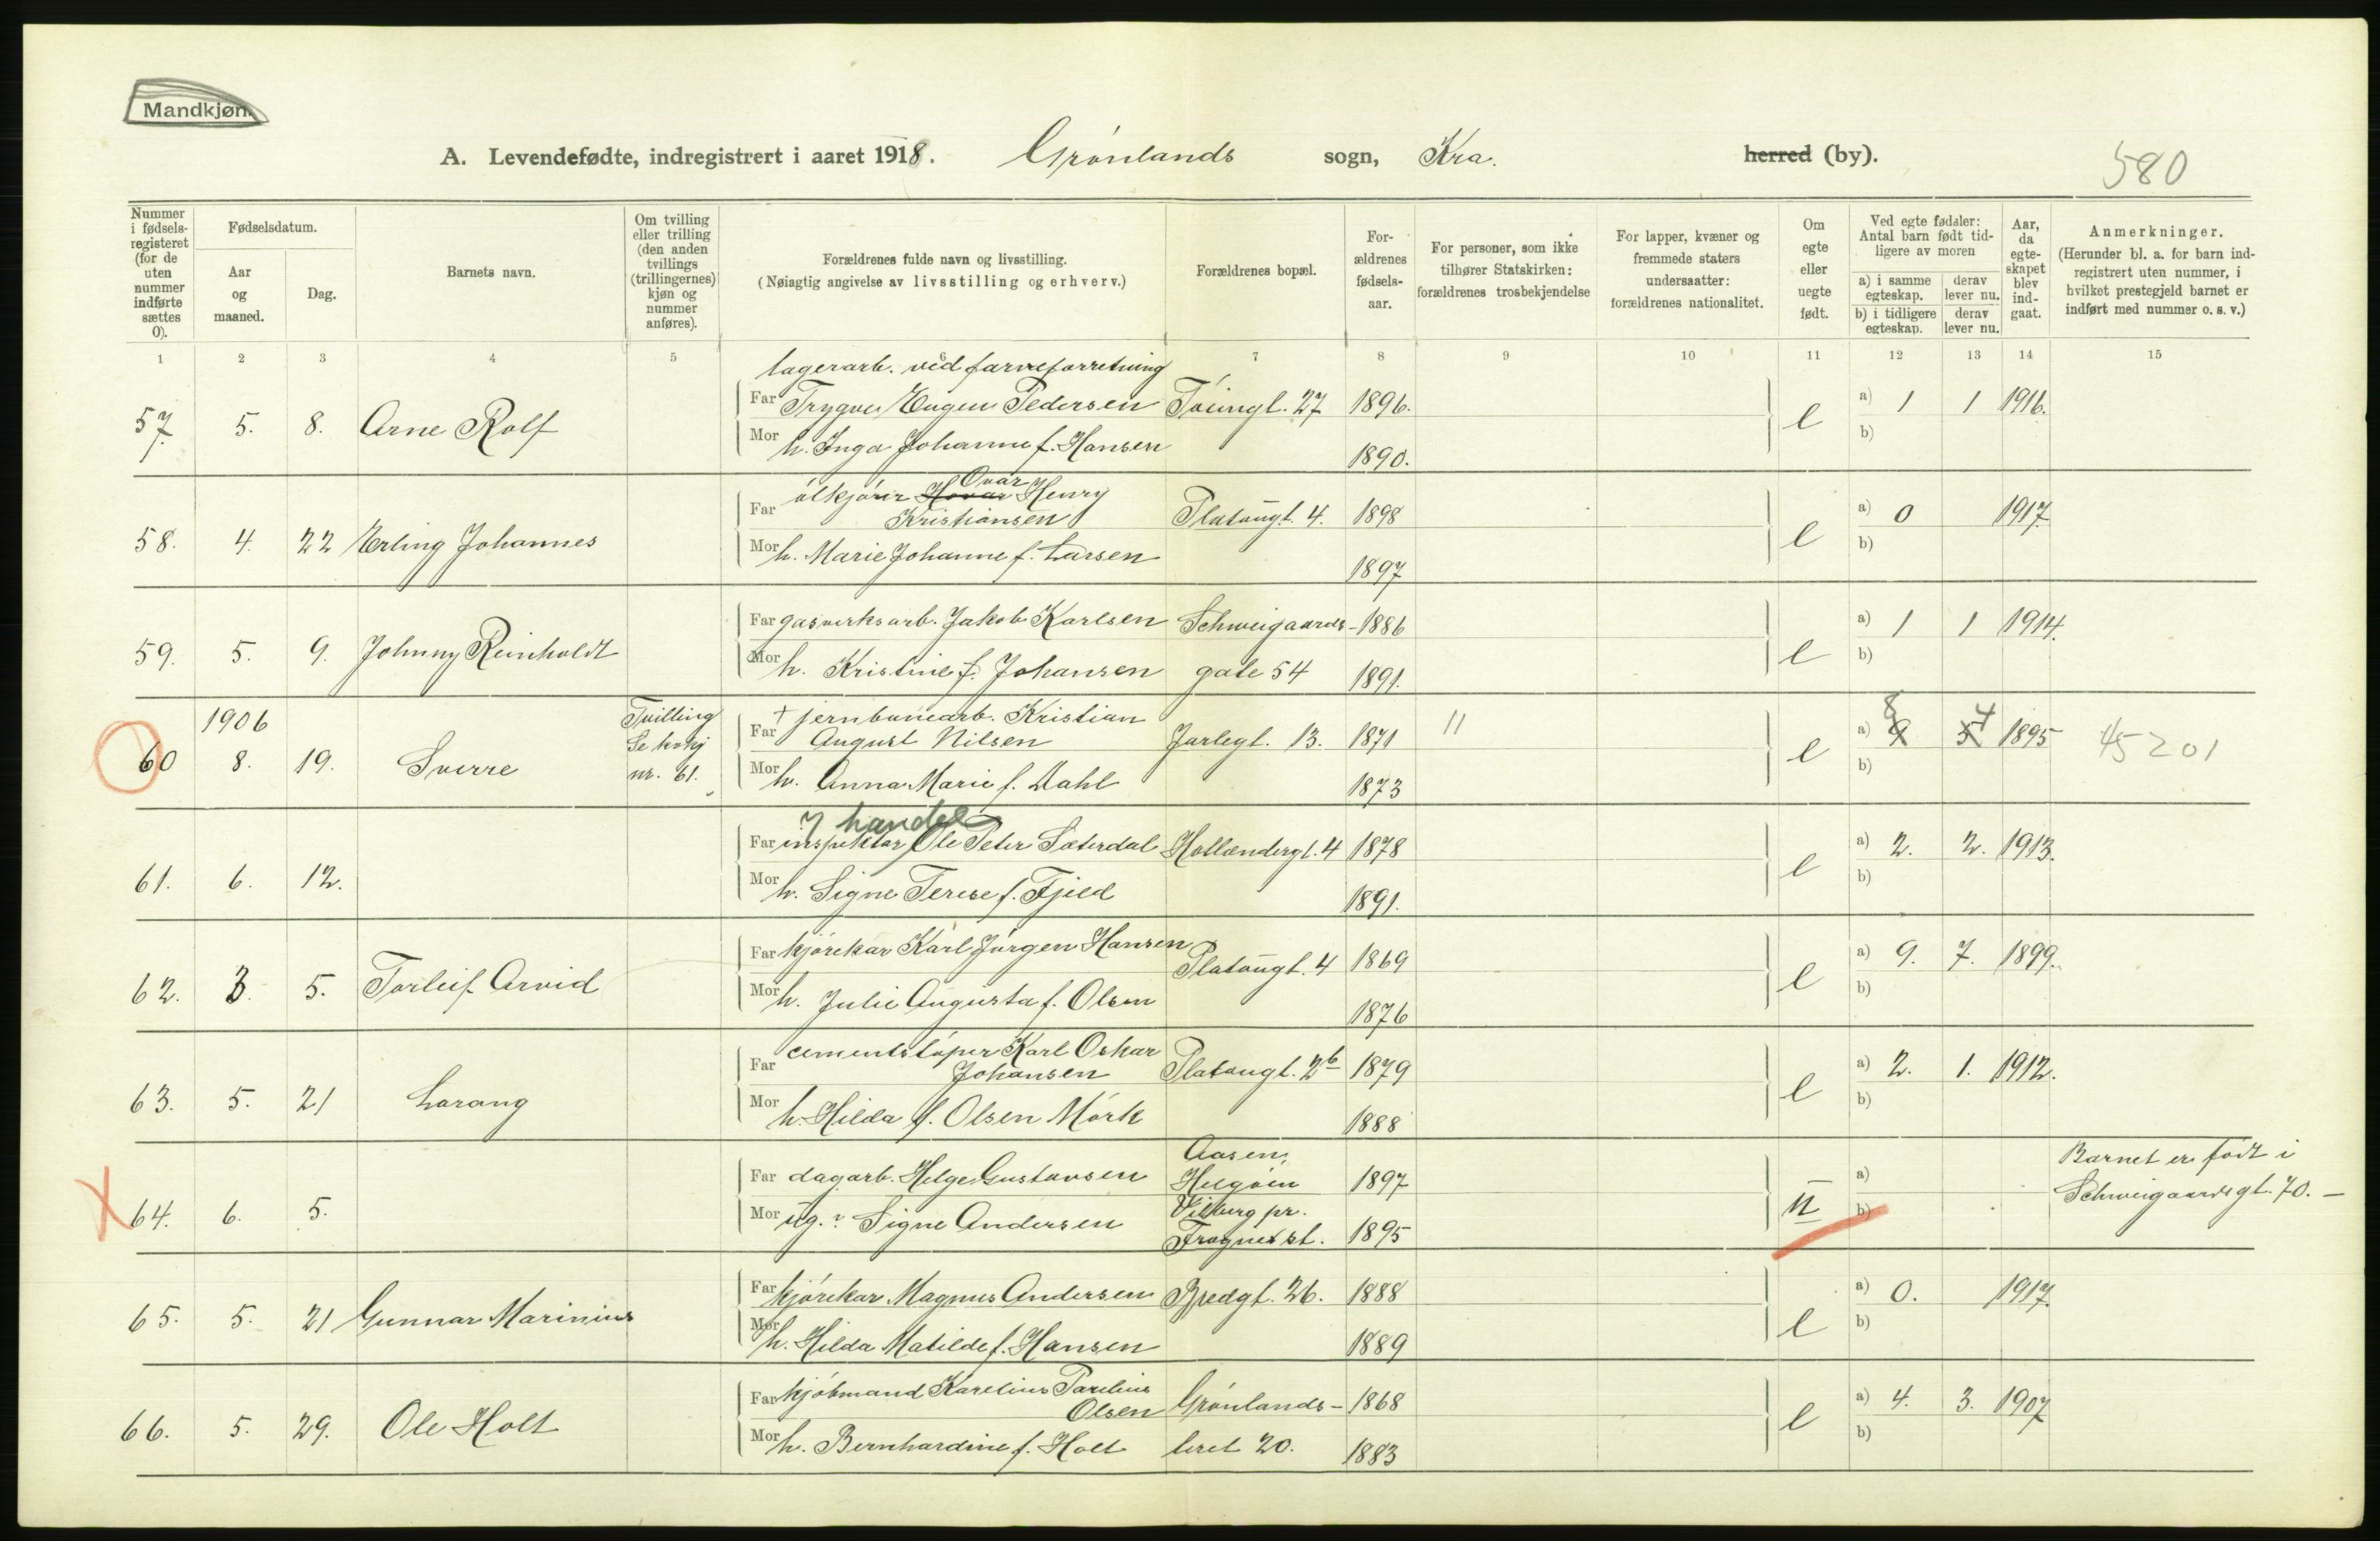 Mandkjøn.
A. Levendefødte, indregistrert i aaret 1918. Grønlands sogn, Kra. herred (by). 580
Nummer i fødsels-registeret (for de uten nummer indførte sættes 0).
Fødselsdatum.
Aar og maaned.
Dag.
Barnets navn.
Om tvilling eller trilling (den anden tvillings (trillingernes) kjøn og nummer anføres).
Forældrenes fulde navn og livsstilling.
(Nøiagtig angivelse av livsstilling og erhverv.)
Forældrenes bopæl.
For-ældrenes fødsels-aar.
For personer, som ikke tilhører Statskirken: forældrenes trosbekjendelse
For lapper, kvæner og fremmede staters undersaatter: forældrenes nationalitet.
Om egte eller uegte født.
Ved egte fødsler: Antal barn født tid-ligere av moren
a) i samme egteskap.
derav lever nu.
b) i tidligere egteskap.
derav lever nu.
Aar, da egte-skapet blev ind-gaat.
Anmerkninger.
(Herunder bl. a. for barn ind-registrert uten nummer, i hvilket prestegjeld barnet er indført med nummer o. s. v.)
1 2 3 4 5 6 7 8 9 10 11 12 13 14 15
lagerarb. ved farveforretning
Far Trygve Eugen Pedersen Tøiengt. 27 1896.
57. 5. 8. Arne Rolf e a) 1 1 1916.
Mor h. Inga Johanne f. Hansen 1890. b)
Ovar
Far ølkjører Hovar Henry
Kristiansen Platougt. 4. 1898 a) 0 1917
58. 4. 22 Erling Johannes e b)
Mor h. Marie Johanne f. Larsen 1897
Far gasverksarb. Jakob Karlsen Schweigaards- 1886 a) 1 1 1914.
59. 5. 9. Johnny Reinholdt e b)
Mor h. Kristine f. Johansen gate 54 1891.
1906 Tvilling + jernbanearb. Kristian 8 4
Se kvkj Far August Nilsen Jarlegt. 13. 1871 11 a) 9 5 1895 45201
60 8. 19. Sverre nr. 61. e b)
Mor h. Anna Marie f. Dahl 1873
i handel
Far inspektør Ole Peter Sæterdal Hollendergt. 4 1878 a) 2. 2. 1913.
61. 6. 12. e b)
Mor h. Signe Terese f. Fjeld 1891.
Far kjørekar Karl Jørgen Hansen Platougt. 4 1869 a) 9. 7. 1899.
62. 3. 5. Torleif Arvid e b)
Mor h. Julie Augusta f. Olsen 1876
Far cementstøper Karl Oskar
Johansen Platougt. 2b 1879 a) 2. 1. 1912.
63. 5. 21 Larang e b)
Mor h. Hilda f. Olsen Mørk 1888
Aasen, Barnet er født i
Far dagarb. Helge Gustavsen Helgøen 1897 a) Schweigaardsgt. 70. –
64. 6. 5. u b)
Mor ug. Signe Andersen Vilberg pr.
Frogner st. 1895
Far kjørekar Magnus Andersen Bredgt. 26. 1888 a) 0. 1917.
65. 5. 21 Gunnar Marinius e b)
Mor h. Hilda Matilde f. Hansen 1889
Far kjøbmand Karelius Parelius
Olsen Grønlands- 1868 a) 4. 3. 1907
66. 5. 29. Ole Holt e b)
Mor h. Bernhardine f. Holt leret 20. 1883